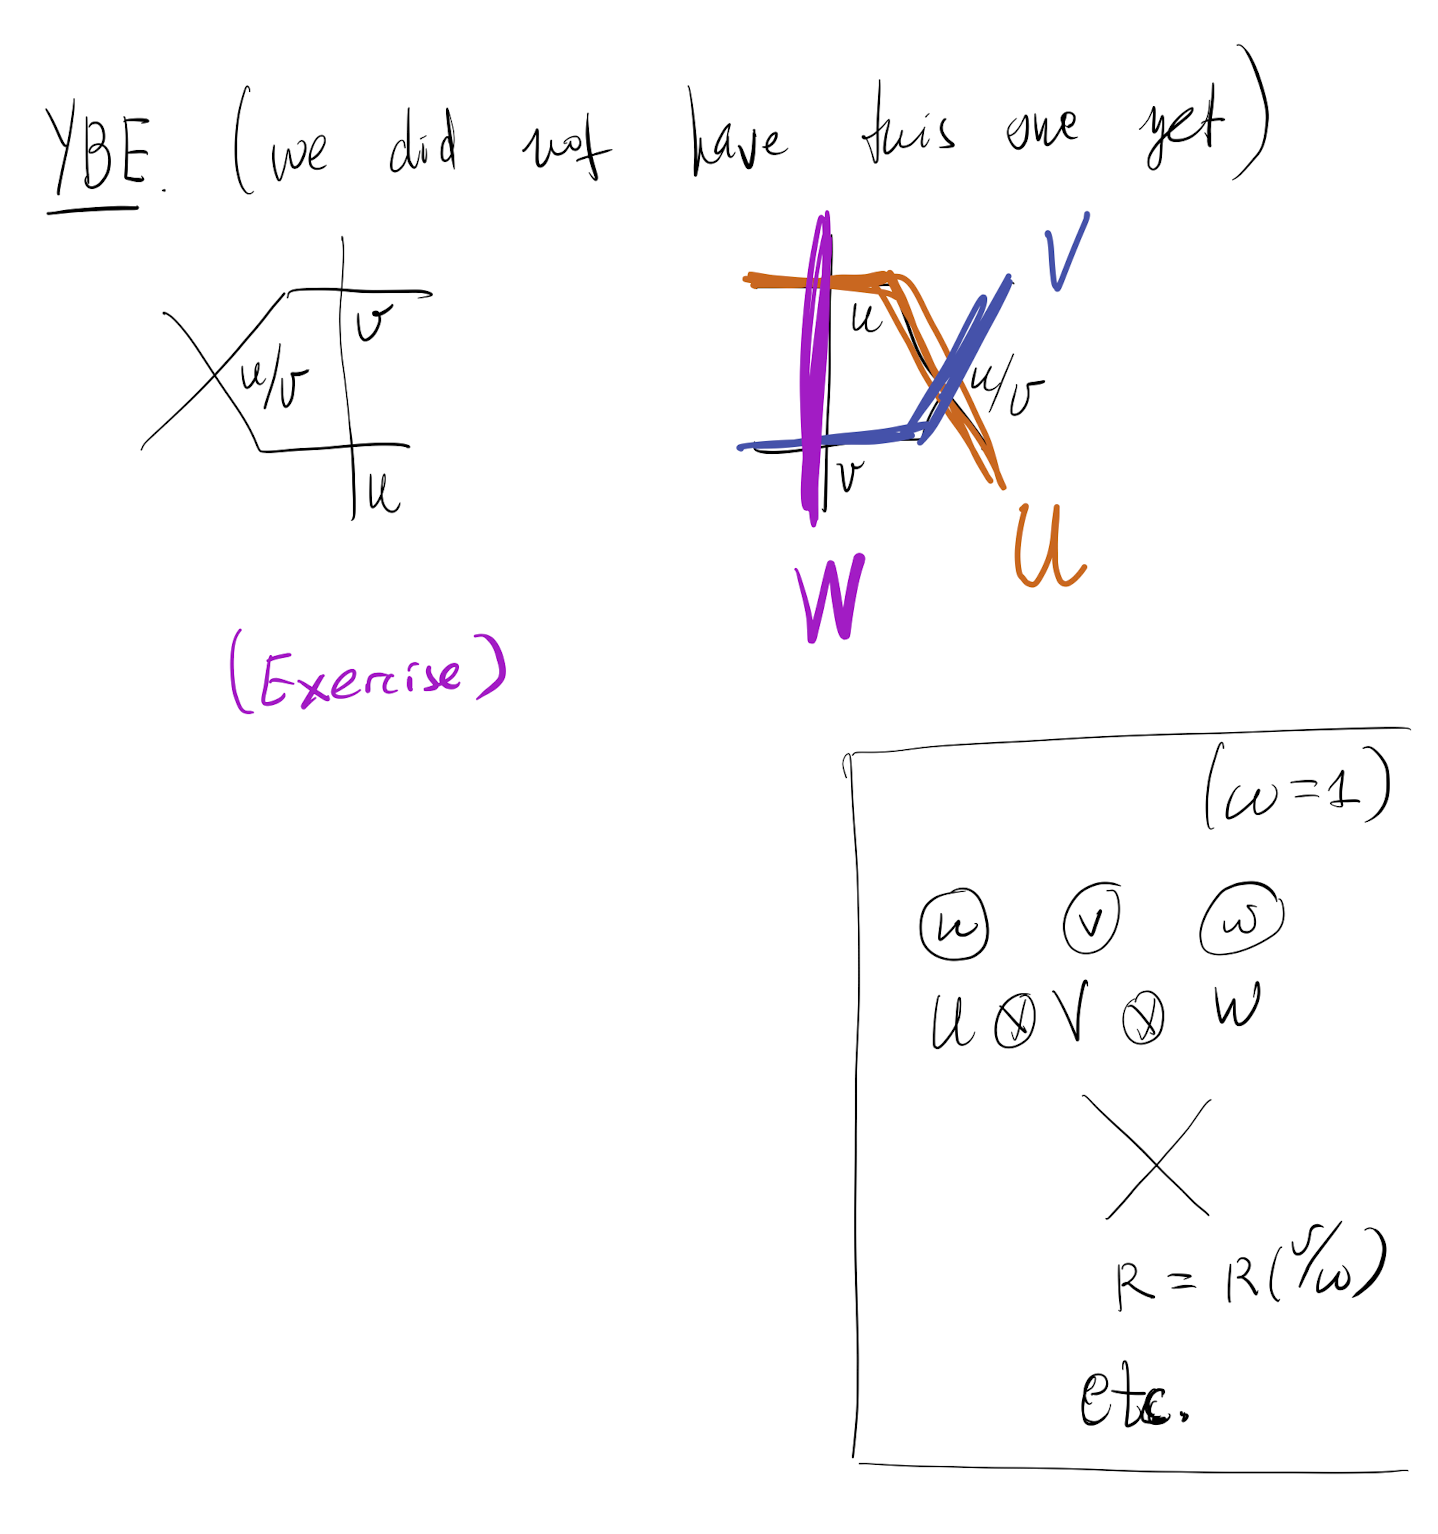 YBE. (we did not have this one yet)
V
v
u
u/v
u/v
u
v
U
W
(Exercise)
(w=1)
u v w
U ⊗ V ⊗ W
R = R(v/w)
etc.